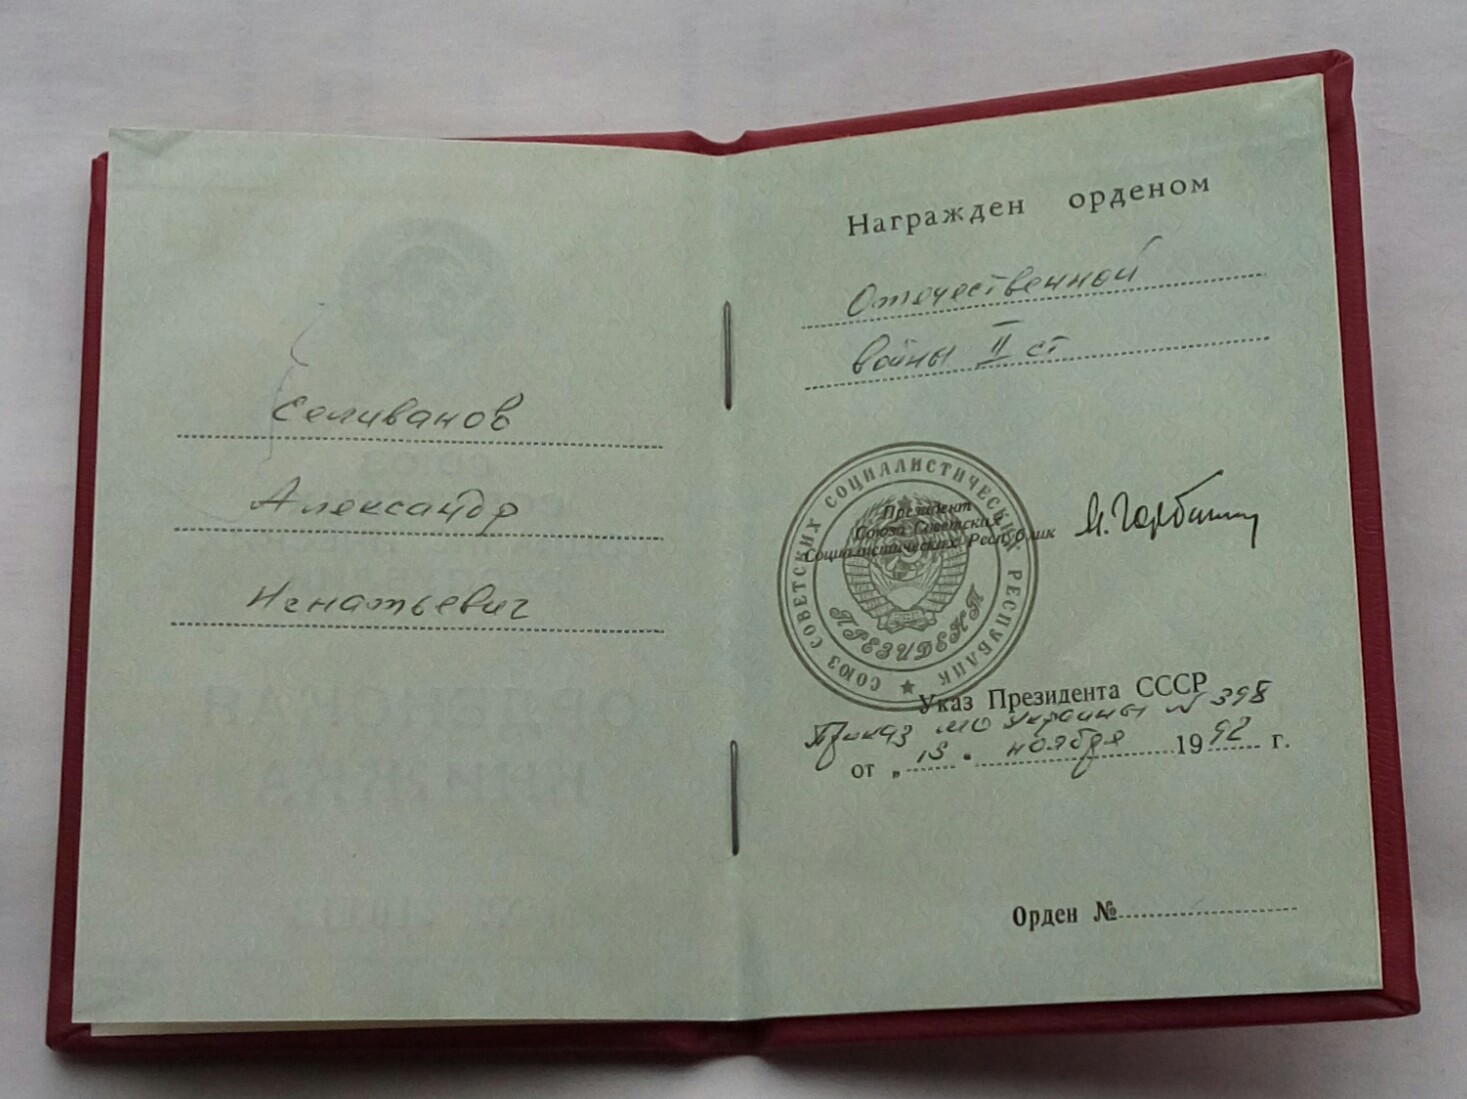 Селиванов
Александр
Игнатьевич
Награжден орденом
Отечественной
войны II ст
СОЮЗ СОВЕТСКИХ СОЦИАЛИСТИЧЕСКИХ РЕСПУБЛИК
ПРЕЗИДЕНТ
Президент
Союза Советских
Социалистических Республик
М. Горбачев
Указ Президента СССР
Приказ МО Украины N 398
от „ 13 " ноября 1992 г.
Орден №